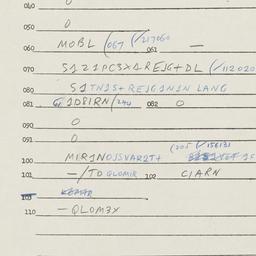 040 0
050 0
060 MOBL (067 (/217060
061 —
070 5121PC3X1REJG+DL (/112020
080 51TN1S+REJG1N1N LANG
081 1D8IRN (244 082 0
090 0
091 0
100 MIR1NOJSVAR2T+ (205 (/156131
101 —/TD QLOMIR 102 CIARN
103
110 —QLOM3X